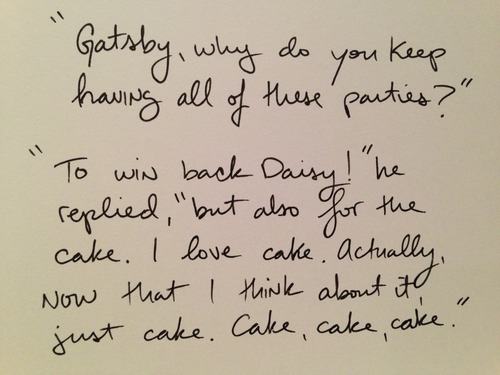 "Gatsby, why do you keep
having all of these parties?"
"To win back Daisy!" he
replied, "but also for the
cake. I love cake. Actually,
now that I think about it,
just cake. Cake, cake, cake."